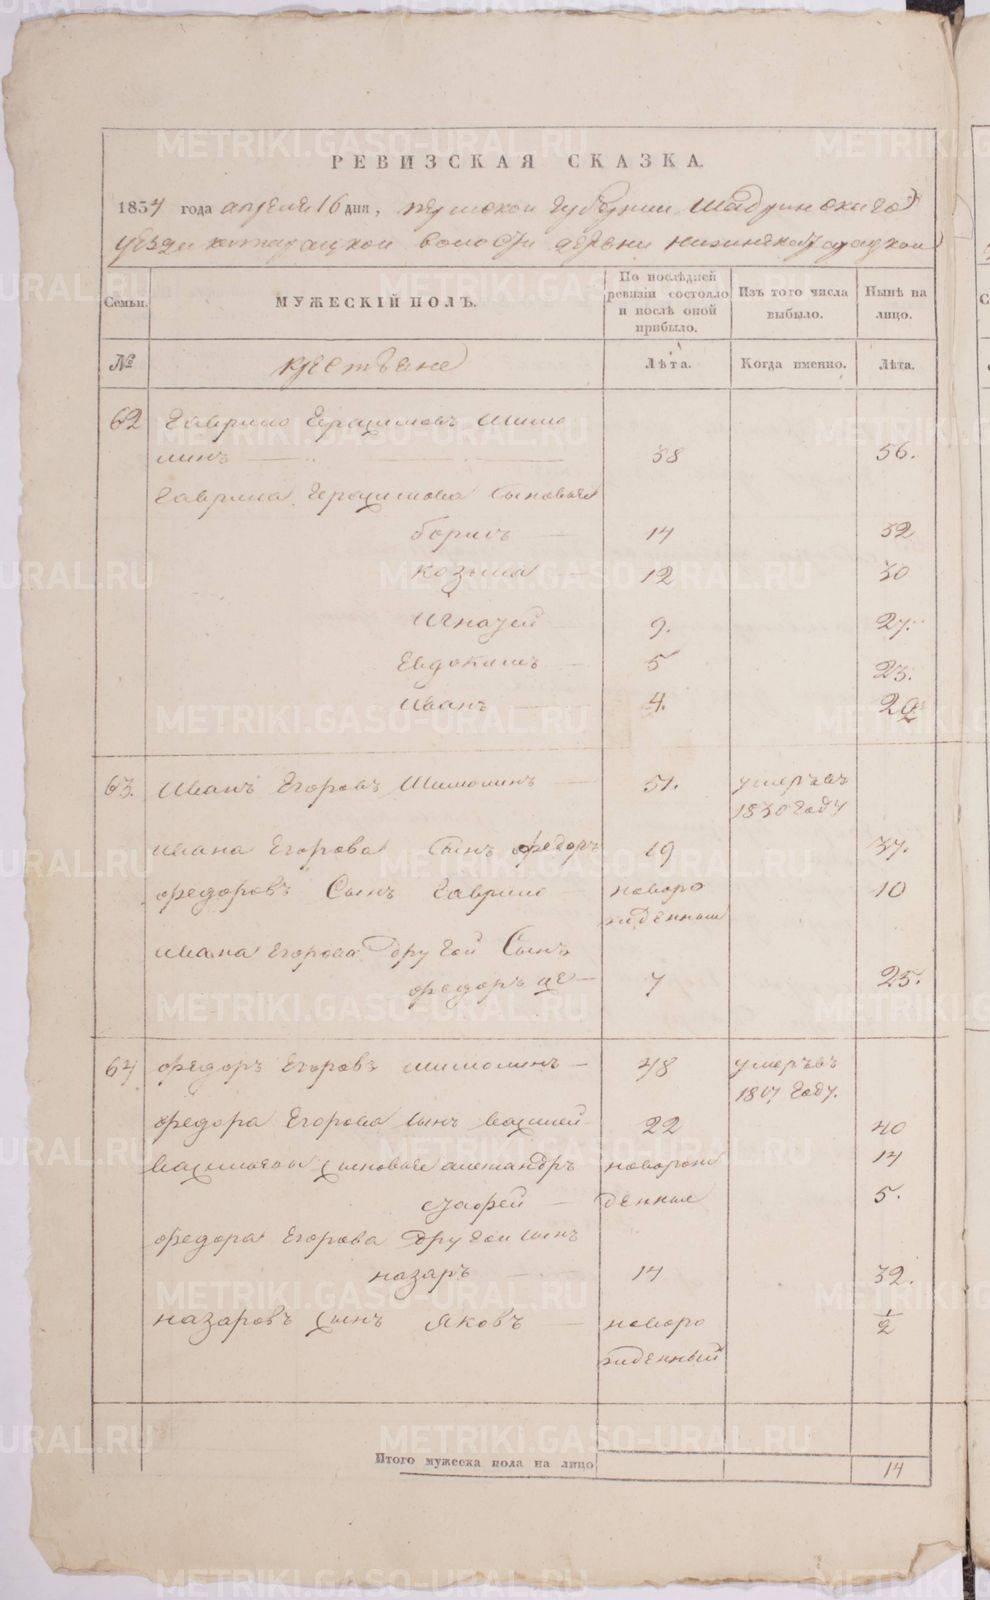 РЕВИЗСКАЯ СКАЗКА.
1834 года апреля 16 дня, пермской губернии Шадринскаго
уезда волости деревни
Семьи.
МУЖЕСКІЙ ПОЛЪ.
По послѣдней
ревизіи состояло
и послѣ оной
прибыло.
Изъ того числа
выбыло.
Нынѣ на
лицо.
№
крестьяне
Лѣта.
Когда именно.
Лѣта.
62 Гаврило Герасимовъ Шимо
линъ 38 56.
Гаврила Герасимова сыновья
Борисъ 14 32
Козьма 12 30
Игнатей 9. 27.
Евдокимъ 5 23.
Иванъ 4. 22
63. Иванъ Егоровъ Шимолинъ 51. умеръ въ
1830 году
Ивана Егорова Сынъ Федоръ 19 37.
Федоровъ Сынъ Гаврило новоро 10
жденный
Ивана Егорова другой Сынъ
Федоръ же 7 25.
64 Федоръ Егоровъ Шимолинъ 48 умеръ въ
году.
Федора Егорова сынъ Василей 22 40
Васильевы сыновья александръ новорож 14
денные 5.
Федора Егорова другой сынъ
назаръ 14 32.
назаровъ сынъ Яковъ новоро 1/2
жденный
Итого мужеска пола на лицо 14
METRIKI.GASO-URAL.RU